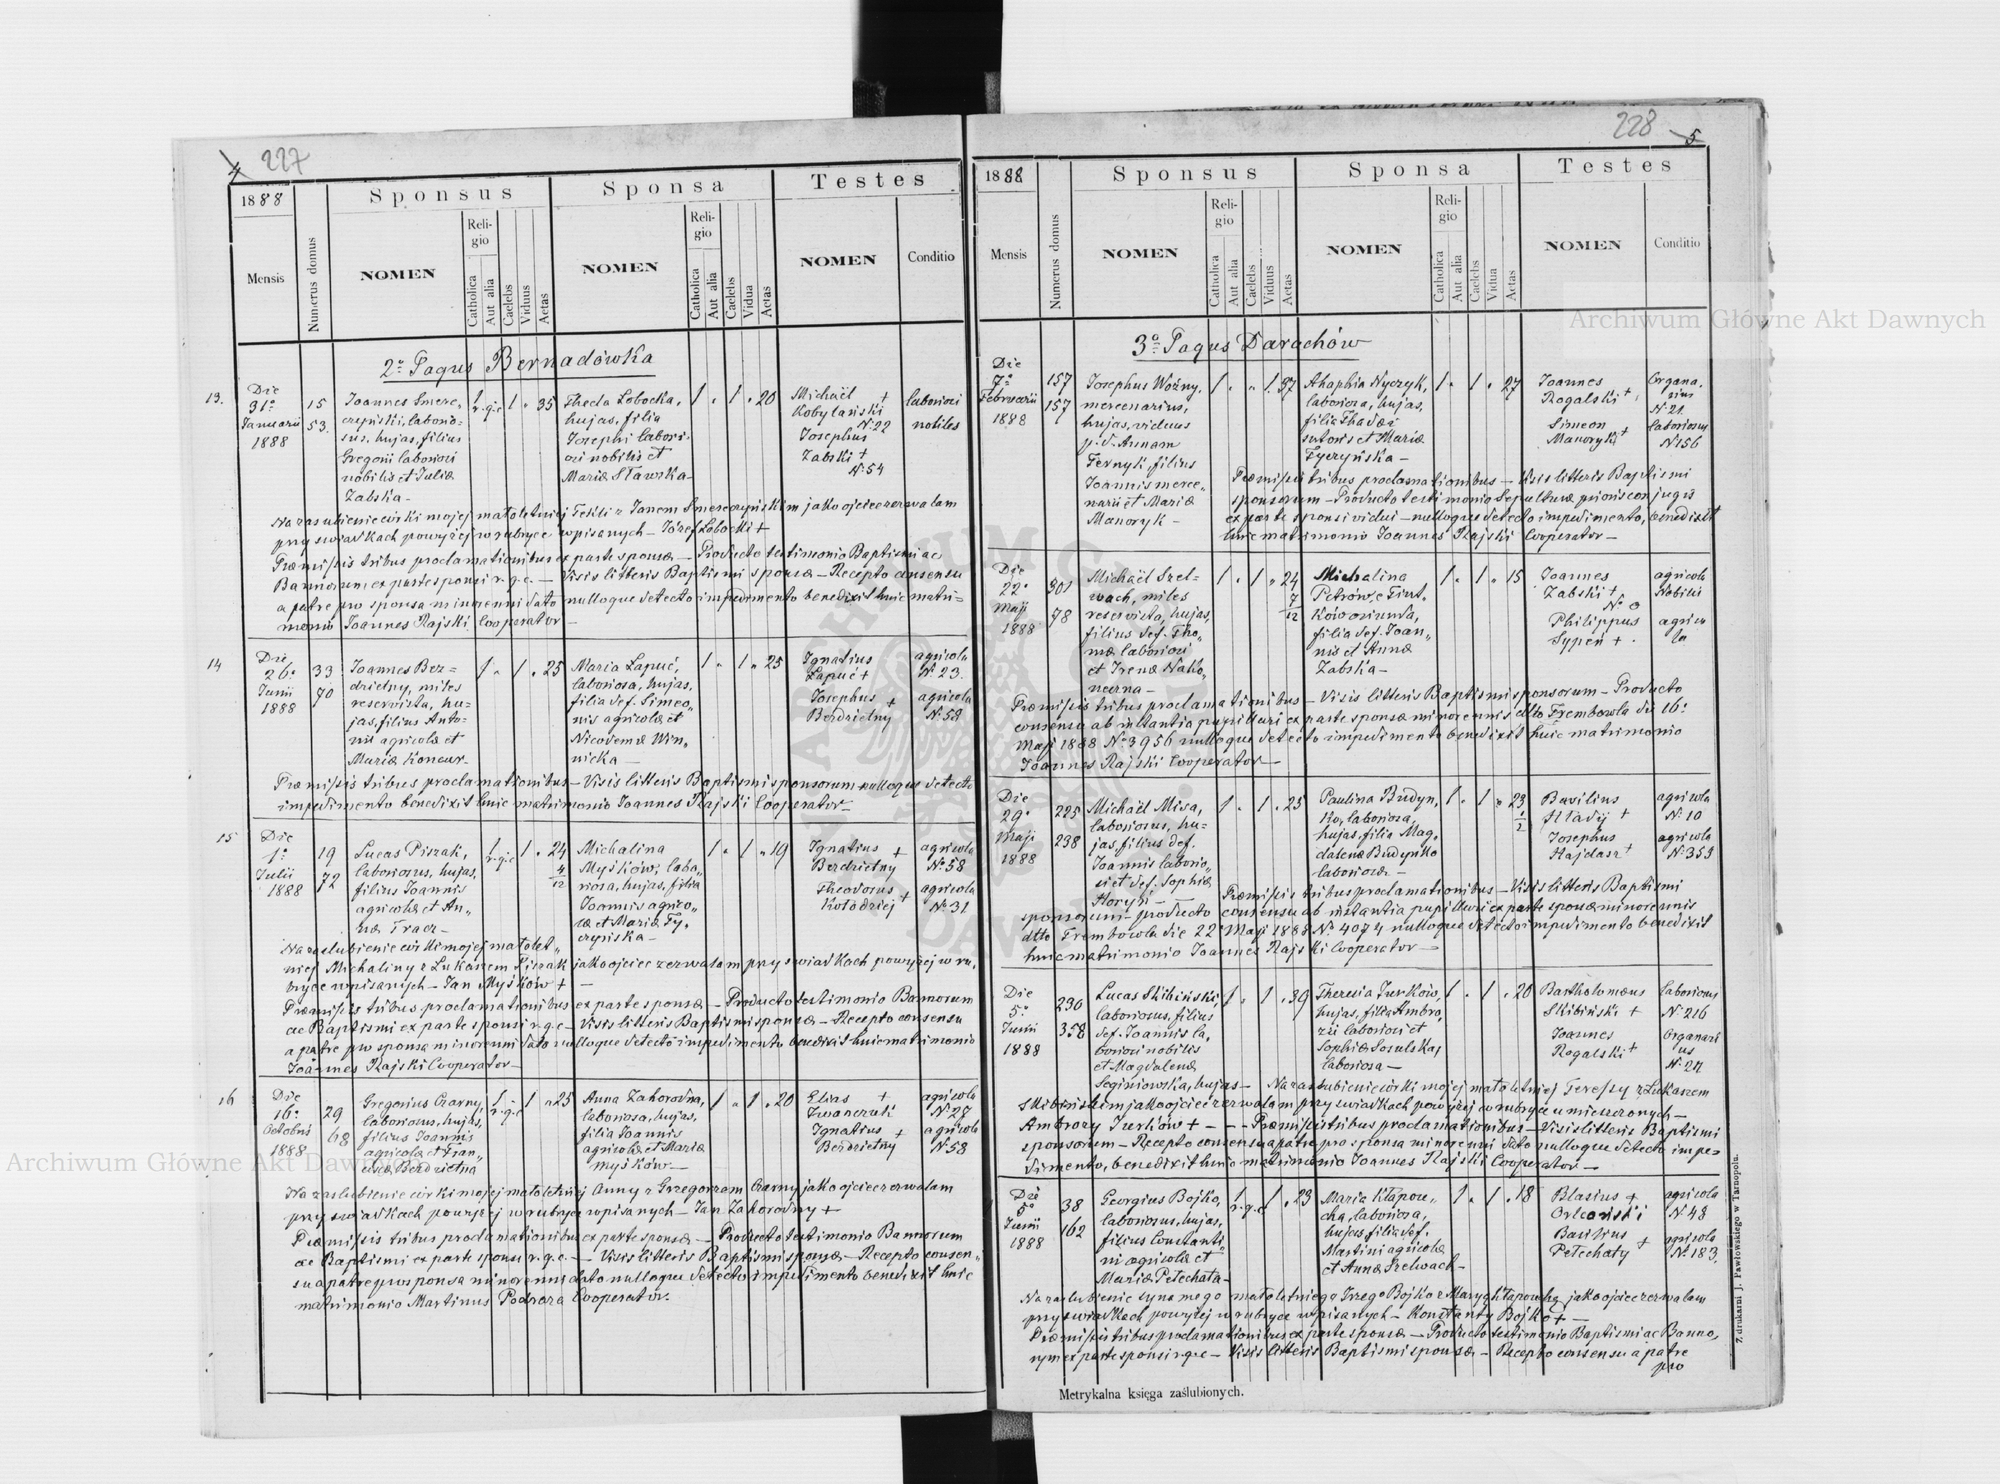 4 227
1888
Mensis
Numerus domus
Sponsus
NOMEN
Religio
Catholica
Aut alia
Caelebs
Viduus
Aetas
Sponsa
NOMEN
Religio
Catholica
Aut alia
Caelebs
Vidua
Aetas
Testes
NOMEN
Conditio
2° Pagus Bernadówka
13.
Die
31°
Januarii
1888
15
53.
Joannes Smere-
czyński, laborio-
sus, hujas, filius
Gregorii laboriosi
nobilis et Juliæ
Zabska -
1
r.g.c
1 " 35
Thecla Łobocka,
hujas, filia
Josephi labori-
osi nobilis et
Mariæ Sławska -
1 " 1 " 20
Michaël +
Kobylański
N. 22
Josephus
Zabski +
N. 54
laboriosi
nobiles
Na zaślubienie córki mojej małoletniej Tekli z Janem Smereczyńskim jako ojciec zezwalam
przy świadkach powyżej w rubryce wpisanych - Józef Łobocki +
Præmissis tribus proclamationibus ex parte sponsæ - Producto testimonio Baptismi ac
Bannorum ex parte sponsi r.g.c. - Visis litteris Baptismi sponsæ - Recepto consensu
a patre pro sponsa minorenni dato nulloque detecto impedimento benedixit huic matri-
monio Joannes Rajski Cooperator -
14
Die
26°
Junii
1888
33
70
Joannes Ber-
dzietny, miles
reservista, hu-
jas, filius Anto-
nii agricolæ et
Mariæ Koncur -
1 " 1 " 25
Maria Łapuć,
laboriosa, hujas,
filia def. Simeo-
nis agricolæ et
Nicodemæ Win-
nicka -
1 " 1 " 25
Ignatius
Łapuć +
Josephus +
Berdzietny
agricola
N. 23.
agricola
N. 58
Præmissis tribus proclamationibus - Visis litteris Baptismi sponsorum nulloque detecto
impedimento benedixit huic matrimonio Joannes Rajski Cooperator -
15
Die
1°
Julii
1888
19
72
Lucas Piszak,
laboriosus, hujas,
filius Joannis
agricolæ et An-
næ Tracz -
1
r.g.c
1 " 24
4/12
Michalina
Myśków, labo-
riosa, hujas, filia
Joannis agrico-
læ et Mariæ Ty-
czyńska -
1 " 1 " 19
Ignatius +
Berdzietny
Theodorus +
Kołodziej
agricola
N. 58
agricola
N. 31
Na zaślubienie córki mojej małolet-
niej Michaliny z Łukaszem Piszak jako ojciec zezwalam przy świadkach powyżej w ru-
bryce wpisanych - Jan Myśków +
Præmissis tribus proclamationibus ex parte sponsæ - Producto testimonio Bannorum
ac Baptismi ex parte sponsi r.g.c - Visis litteris Baptismi sponsæ - Recepto consensu
a patre pro sponsa minorenni dato nulloque detecto impedimento benedixit huic matrimonio
Joannes Rajski Cooperator -
16
Die
16°
Octobris
1888
29
68
Gregorius Czarny,
laboriosus, hujas,
filius Joannis
agricolæ et Fran-
ciscæ Berdzietna
1
r.g.c
1 " 25
Anna Zahorodna,
laboriosa, hujas,
filia Joannis
agricolæ et Mariæ
Myśków. -
1 " 1 " 20
Elias +
Iwanczuk
Ignatius +
Berdzietny
agricola
N. 27
agricola
N. 58
Na zaślubienie córki mojej małoletniej Anny z Grzegorzem Czarny jako ojciec zezwalam
przy świadkach powyżej w rubryce wpisanych - Jan Zahorodny +
Præmissis tribus proclamationibus ex parte sponsæ - Producto testimonio Bannorum
ac Baptismi ex parte sponsi r.g.c. - Visis litteris Baptismi sponsæ - Recepto consen-
su a patre pro sponsa minorenni dato nulloque detecto impedimento benedixit huic
matrimonio Martinus Podraza Cooperator. -
228 5
1888
Mensis
Numerus domus
Sponsus
NOMEN
Religio
Catholica
Aut alia
Caelebs
Viduus
Aetas
Sponsa
NOMEN
Religio
Catholica
Aut alia
Caelebs
Vidua
Aetas
Testes
NOMEN
Conditio
3° Pagus Darachów
Die
7°
Februarii
1888
157
157
Josephus Woźny,
mercenarius,
hujas, viduus
p. d. Annam
Fernyk, filius
Joannis merce-
narii et Mariæ
Manoryk -
1 " " 1. 37
Ahaphia Nyczyk,
laboriosa, hujas,
filia Thadæi
sutoris et Mariæ
Tyczyńska -
1 " 1 " 27
Joannes
Rogalski +
Simeon
Manoryk +
Organa-
rius
N. 21.
laboriosus
N 156
Præmissis tribus proclamationibus - Visis litteris Baptismi
sponsorum - Producto testimonio Sepulturæ prioris conjugis
ex parte sponsi vidui - nulloque detecto impedimento, benedixit
huic matrimonio Joannes Rajski Cooperator -
Die
22°
Maji
1888
301
78
Michaël Szel-
wach, miles
reservista, hujas,
filius def. Tho-
mæ laboriosi
et Irenæ Nako-
neczna -
1 " 1 " 24
7/12
Michalina
Petrów, e Tiut-
ków oriunda,
filia def. Joan-
nis et Annæ
Zabska -
1 " 1 " 15
Joannes
Zabski +
Philippus
Sypeń +
agricola
Nobilis
agrico
la
Præmissis tribus proclamationibus - Visis litteris Baptismi sponsorum - Producto
consensu ab instantia pupillari ex parte sponsæ minorennis dtto Trembowla die 16°
Maji 1888 N. 3956 nulloque detecto impedimento benedixit huic matrimonio
Joannes Rajski Cooperator -
Die
29°
Maji
1888
225
238
Michaël Misa,
laboriosus, hu-
jas, filius def.
Joannis laborio-
si et def. Sophiæ
Horyń -
1 " 1 " 25
Paulina Budyn-
ko, laboriosa,
hujas, filia Mag-
dalenæ Budynko
laboriosæ -
1 " 1 " 23
1/2
Basilius
Hładij +
Josephus
Hajdasz +
agricola
N. 10
agricola
N. 353
Præmissis tribus proclamationibus - Visis litteris Baptismi
sponsorum - producto consensu ab instantia pupillari ex parte sponsæ minorennis
dtto Trembowla die 22 Maji 1888 N. 4074 nulloque detecto impedimento benedixit
huic matrimonio Joannes Rajski Cooperator -
Die
5°
Junii
1888
230
358
Lucas Skibiński,
laboriosus, filius
def. Joannis la-
boriosi nobilis
et Magdalenæ
Seginiowska, hujas -
1 " 1 " 39
Theresia Jurków,
hujas, filia Ambro-
zii laboriosi et
Sophiæ Sosulskaj
laboriosa -
1 " 1 " 20
Bartholomæus
Skibiński +
Joannes
Rogalski +
laboriosus
N. 216
Organari
us
N. 21
Na zaślubienie córki mojej małoletniej Teressy z Łukaszem
Skibińskim jako ojciec zezwalam przy świadkach powyżej w rubryce umieszczonych -
Ambrozy Jurków + - - Præmissis tribus proclamationibus - Visis litteris Baptismi
sponsorum - Recepto consensu a patre pro sponsa minorenni dato nulloque detecto impe-
dimento, benedixit huic matrimonio Joannes Rajski Cooperator -
Die
5°
Junii
1888
38
162
Georgius Bojko,
laboriosus, hujas,
filius Constanti-
ni agricolæ et
Mariæ Petechata -
1
r.g.c
1 " 23
Maria Kłapou-
cha, laboriosa,
hujas, filia def.
Martini agricolæ
et Annæ Szelwach -
1 " 1 " 18
Blasius +
Orleański
Basilius +
Petechaty
agricola
N. 48
agricola
N. 183.
Na zaślubienie syna mego małoletniego Jurego Bojko z Maryą Kłapouchą jako ojciec zezwalam
przy świadkach powyżej w rubryce wpisanych - Konstanty Bojko + -
Præmissis tribus proclamationibus ex parte sponsæ - Producto testimonio Baptismi ac Banno-
rum ex parte sponsi r.g.c - Visis litteris Baptismi sponsæ - Recepto consensu a patre
pro
Metrykalna księga zaślubionych.
Z drukarni J. Pawłowskiego w Tarnopolu.
Archiwum Główne Akt Dawnych
Archiwum Główne Akt Dawnych